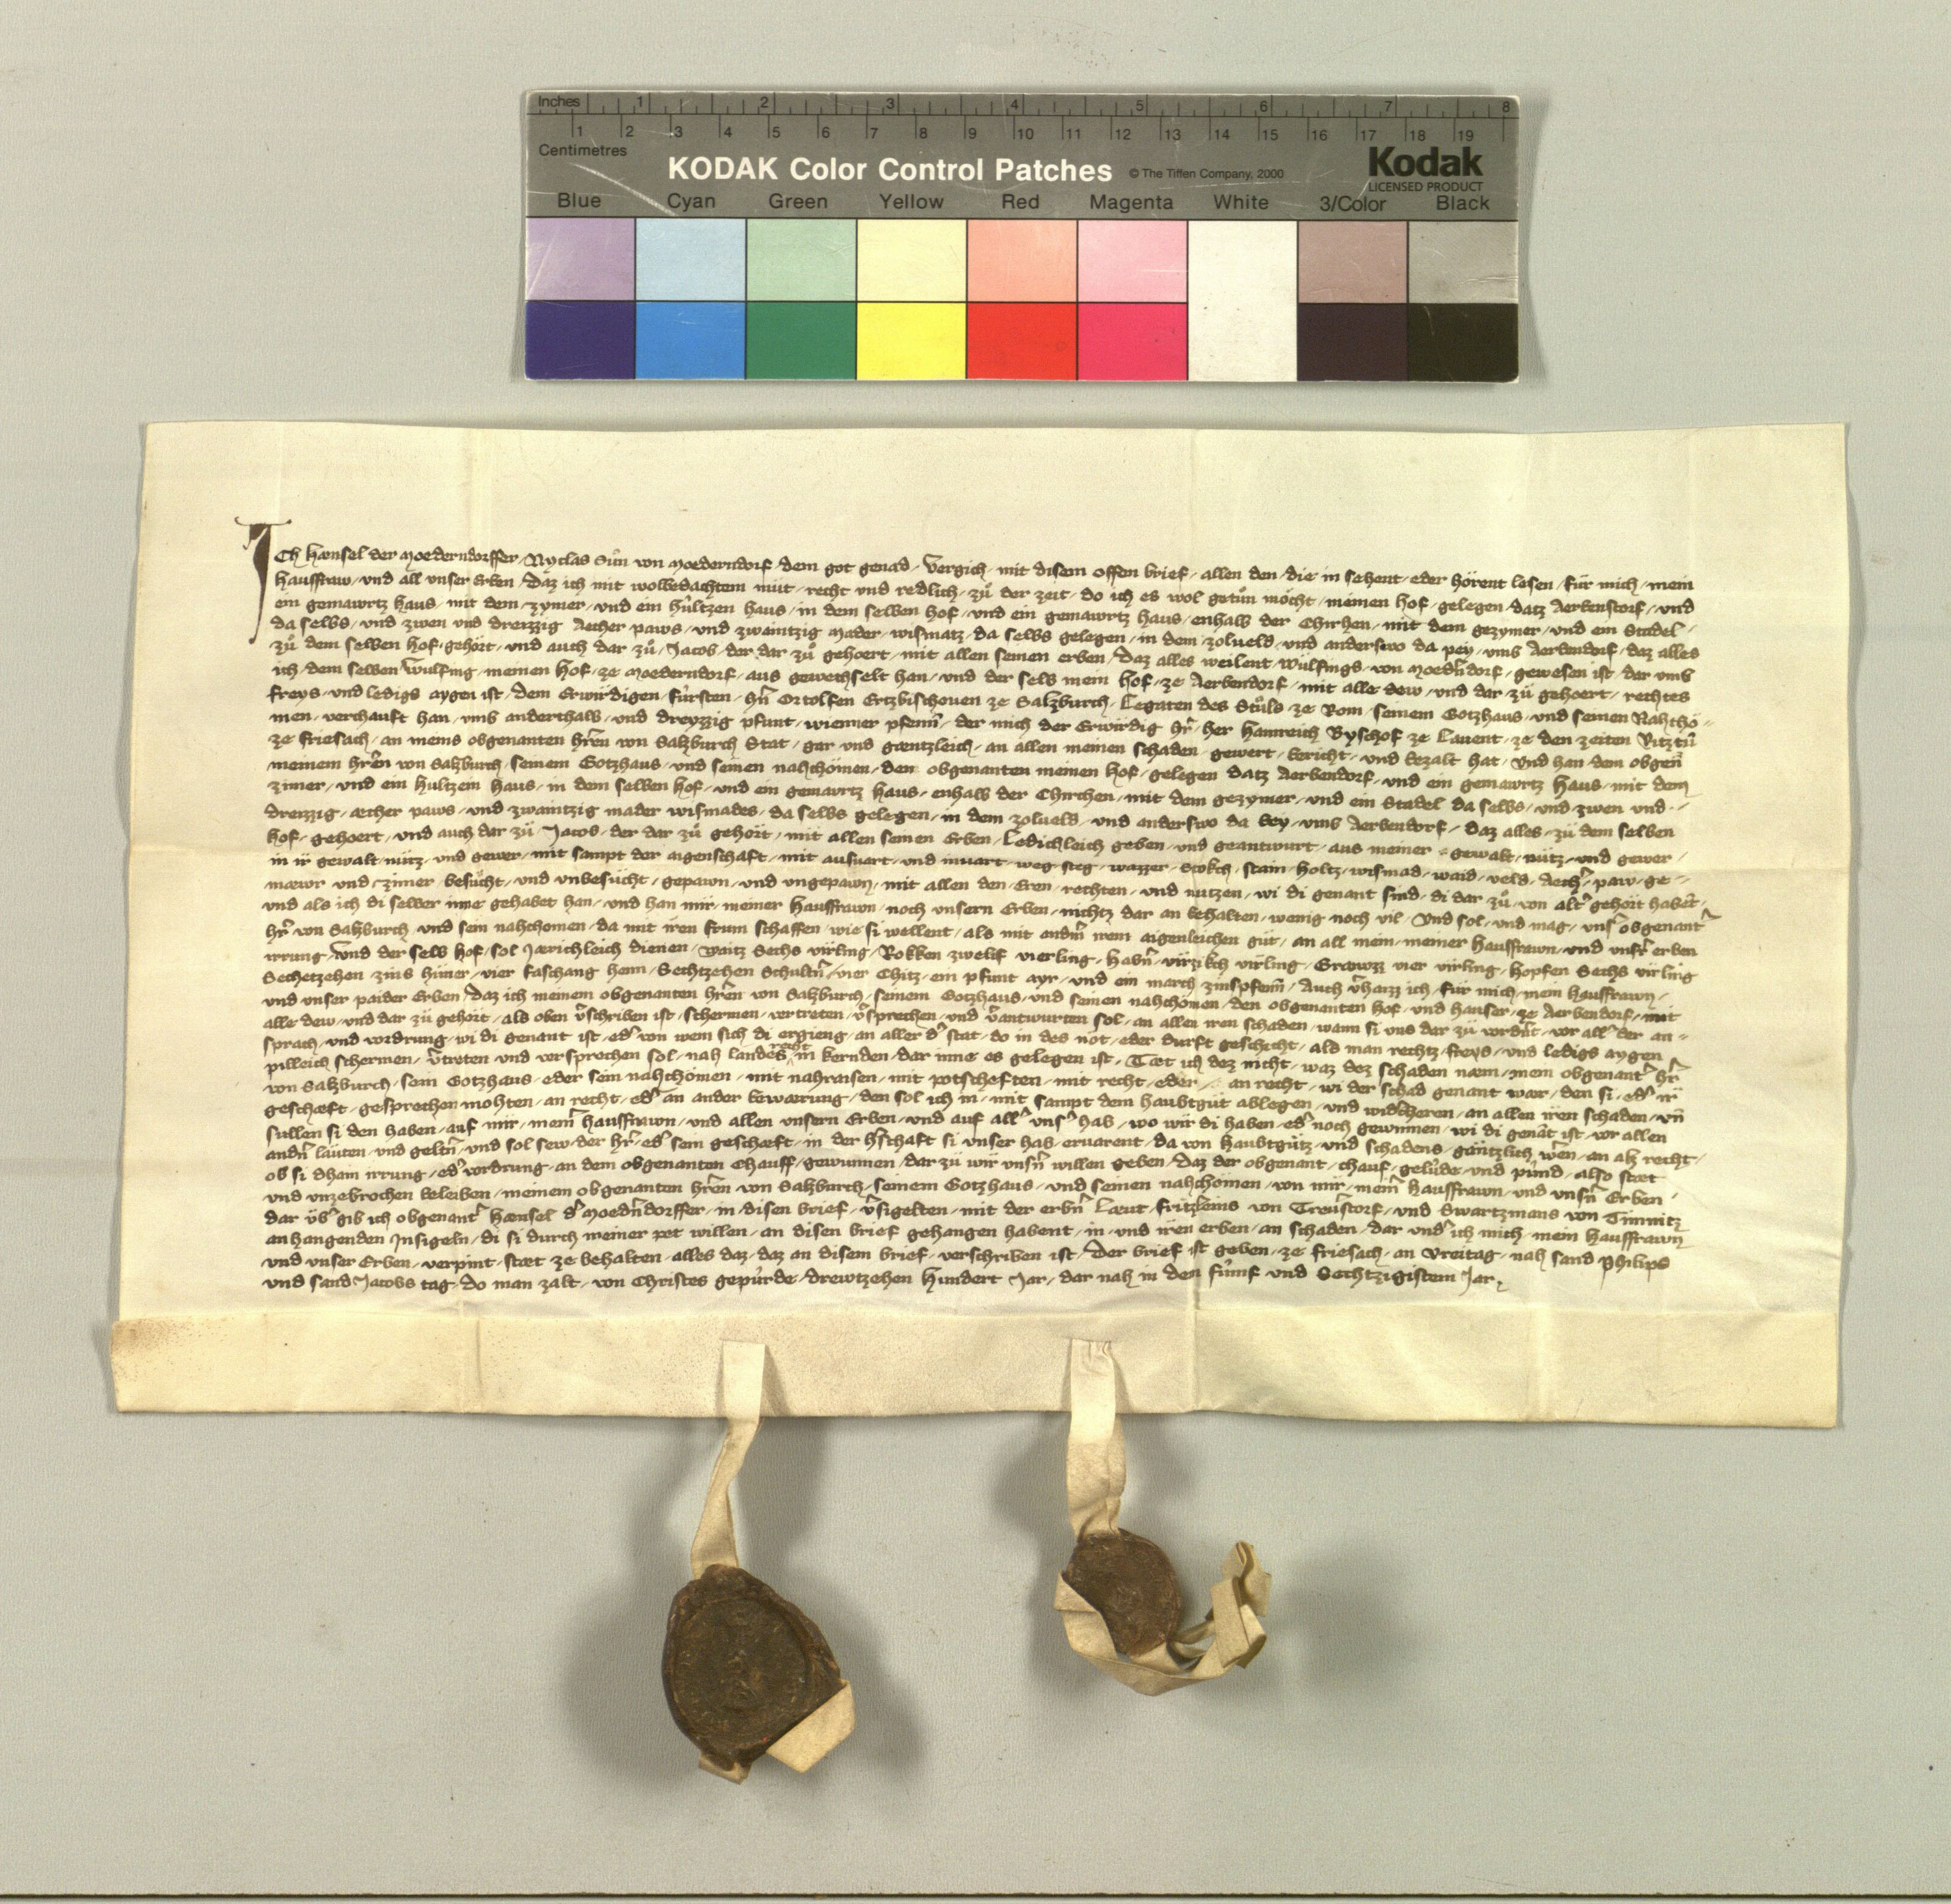 Inches 1 2 3 4 5 6 7 8
1 2 3 4 5 6 7 8 9 10 11 12 13 14 15 16 17 18 19
Centimetres
KODAK Color Control Patches © The Tiffen Company, 2000 Kodak
LICENSED PRODUCT
Blue Cyan Green Yellow Red Magenta White 3/Color Black
Ich Hænsel der Moederndorffer, Nyclas Sůn von Moederndorf, dem got genad, vergich, mit disem offen brief, allen den, die in sehent, eder hörent lesen, für mich, mein
hausfraw, und all unser Erben, daz ich mit wolbedachtem müt, recht und redlich, zů der zeit, do ich es wol getůn mocht, meinen hof, gelegen, datz Aerbendorf, und
ein gemawrtz haus, mit dem, zymer, und ein hůltzen haus, in dem selben hof, und ein gemawrtz haus, enhalb der Chirhen, mit dem gezymer, und ein Stadel,
da selbs, und zwen und dreizzig Aecher paws, und zwaintzig mader, wismatz, da selbs gelegen, in dem, zolueld, und anderswo da pey, umb Aerbendorf, daz alles
zů dem selben hof, gehört, und auch dar zů, Jacob, der dar zů gehoert, mit allen seinen erben, daz alles weilent, Wülfings, von Moedn̄dorf, gewesen ist, der umb
ich, dem selben Wulfing, meinen hof, ze Moederndorf, aus gewechselt han, und der selb mein hof, ze Aerbendorf, mit alle dew, und dar zů gehoert, rechtes
freys, und ledigs aygen ist, dem Erwirdigen, fürsten, hn̄ Ortolfen Ertzbischouen ze Salzburch, Legaten des Stůls ze Rom, seinem Gotzhaus, und seinen Nahchö-
men, verchauft han, umb anderthalb, und dreyzzig pfunt, wienner pfenn̄, der mich der Erwirdig hr̄, her Hainreich Byschof ze Lauent, ze den zeiten Vitztů
ze friesach, an meins obgenanten hr̄en von Salzburch Stat, gar und gæntzleich, an allen meinen schaden, gewert, bericht, und bezalt hat, Und han dem obgen̄
meinem hr̄en von Salzburch, seinem Gotzhaus, und seinen nahchömen, den obgenanten meinen hof, gelegen datz Aerbendorf, und ein gemawrtz haus, mit dem
zimer, und ein hultzein haus, in dem selben hof, und ein gemawrtz haus, enhalb der Chirchen, mit dem gezymer, und ein Stadel da selbs, und zwen und
dreizzig, æcher paws, und zwaintzig mader wismades, da selbs gelegen, in dem zolueld, und anderswo da bey, umb Aerbendorf, daz alles, zů dem selben
hof, gehoert, und auch dar zů Jacob, der dar zů gehört, mit allen seinen Erben, Ledichleich geben, und geantwurt, aus meiner gewalt, nütz, und gewer,
in ir gewalt, nütz, und gewer, mit sampt der aigenschaft, mit ausuart, und inuart, weg, steg, wazzer, Stokch, stain, holtz, wismad, waid, veld, Aech̄, paw, ge-
mæwr und zimer, besücht, und unbesücht, gepawn, und ungepawn, mit allen den Eren, rechten, und nutzen, wi di genant sind, di dar zů, von alt̄ gehört habēt,
und als ich di selber inne gehabet han, und han mir, meiner hausfrawn, noch unsern Erben, nichtz dar an behalten, wenig noch vil, Und sol, und mag, uns̄ obgenant̄
hr̄ von Salzburch, und sein nahchomen, da mit iren frum schaffen, wie si wellent, als mit andn̄ irem aigenleichen gůt, an all mein, meiner hausfrawn, und unsr̄ erben
irrung, Und der selb hof, sol Jærichleich dienen, Waitz Sechs virling, Rokken zwelif vierling, habn̄, virzikch virling, Grawzz vier virling, hopfen Sechs virling
Sechetzehen zins hüner, vier faschang henn, Sechtzehen Schultn̄, vier Chitz, ein pfunt ayr, und ein march zinspfenn̄, Auch v̄haizz ich, für mich, mein hausfrawn,
und unser paider Erben, daz ich meinem obgenanten hr̄en von Salzburch, seinem Gotzhaus, und seinen nahchömen, den obgenanten hof, und hauser, ze Aerbendorf, mit
alle dew, und dar zů gehört, als oben v̄schriben ist, schermen, vertreten, v̄sprechen, und v̄antwurten sol, an allen iren schaden, wann si uns dar zů vordn̄t, vor all̄ der an-
sprach, und vordrung, wi di genant ist, ed̄ von wem sich di ergieng, an aller d̄ stat, do in des not, eder durft geschicht, als man rechtz, freys, und ledigs aygen
pilleich schermen, v̄treten und versprechen sol, nah landes recht, in kernden, dar inne es gelegen ist, Tæt ich dez nicht, waz dez schaden næm, mein obgenant̄ hr̄
von Salzburch, sein Gotzhaus, eder sein nahchömen, mit nahraisen, mit potscheften, mit recht, eder an recht, wi der schad genant wær, den si, ed̄ ir
geschæft, gesprechen mohten, an recht, ed̄ an ander bewærung, den sol ich in, mit sampt dem haubtgůt ablegen, und wid̄cheren, an allen iren schaden, un̄
sullen si den haben, auf mir, mein̄ hausfrawn, und allen unsern Erben, und auf all̄ uns̄ hab, wo wir di haben, ed̄ noch gewinnen, wi di genāt ist, vor allen
andn̄ läuten, und geltn̄, und sol sew, der hr̄, ed̄ sein geschæft, in der h̄schaft si unser hab, eruarent, da von haubtgůtz, und schadens, gäntzlich, wen̄, an alz recht,
ob si dhain irrung, ed̄ vordrung, an dem obgenanten Chauff, gewunnen, dar zů wir unsn̄ willen geben, daz der obgenant, chauf, gelübde, und pünd, also stæt
und unzebrochen beleiben, meinem obgenanten hr̄en von Salzburch, seinem Gotzhaus, und seinen nahchömen, von mir, mein̄ hausfrawn, und unsn̄ Erben,
dar üb̄ gib ich obgenant̄ Hænsel d̄ Moedn̄dorffer, in, disen brief, v̄sigelten, mit der erbn̄ Læut, fritzleins von Treustorf, und Swartzmans von Timnitz
anhangenden Insigeln, di si durch meiner pet willen, an disen brief gehangen habent, in, und iren erben, an schaden, dar und̄ ich mich, mein hausfrawn
und unser Erben, verpint, stæt ze behalten, alles daz, daz an disem brief, verschriben ist, Der brief ist geben, ze friesach, an Vreitag, nah sand Philips
und sand Jacobs tag, do man zalt, von Christes gepürde, drewtzehen hundert Jar, dar nah in den fümf und Sechtzigistem Jar.